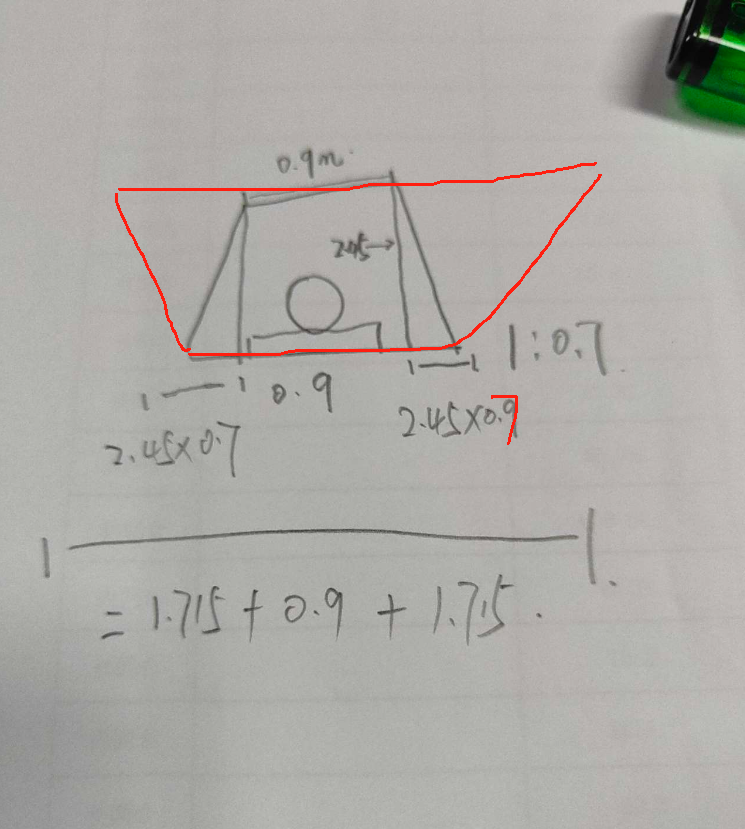 0.9m.
2.45→
1:0.7.
0.9
2.45×0.7
2.45×0.7
1.
= 1.715 + 0.9 + 1.715.